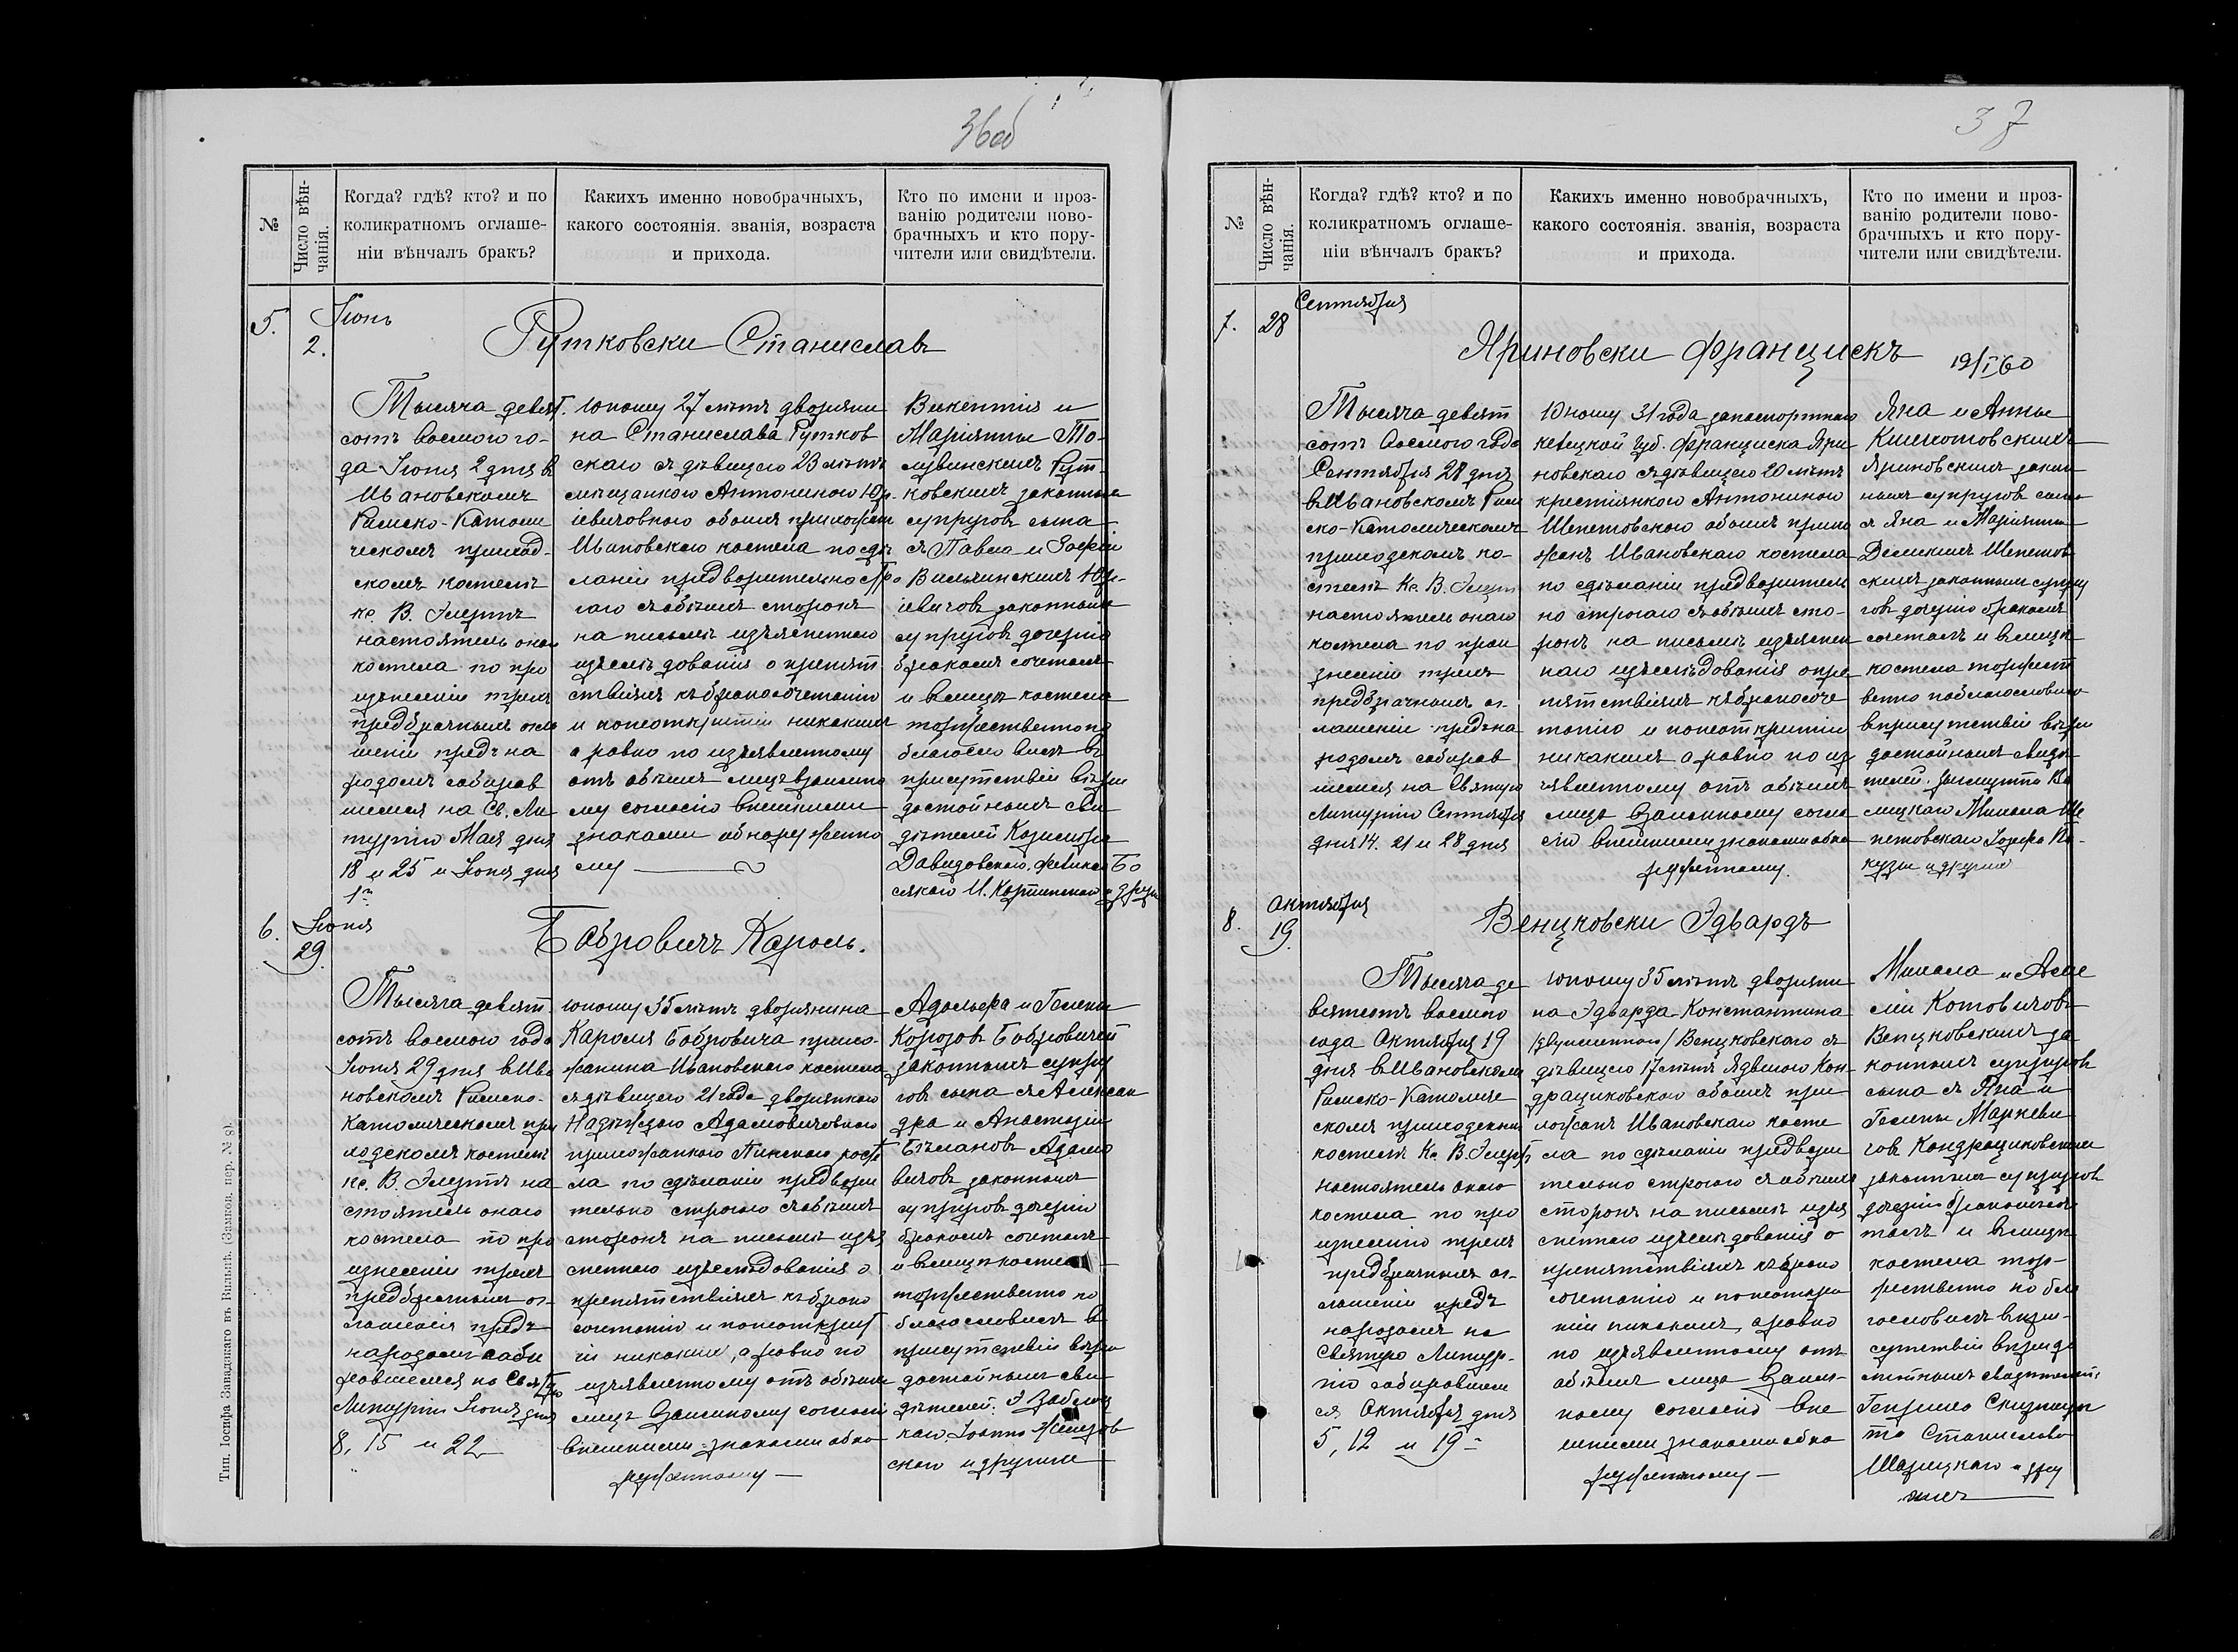 36об
№
Число вѣн-
чанія.
Когда? гдѣ? кто? и по
коликратномъ оглаше-
ніи вѣнчалъ бракъ?
Какихъ именно новобрачныхъ,
какого состоянія. званія, возраста
и прихода.
Кто по имени и проз-
ванію родители ново-
брачныхъ и кто пору-
чители или свидѣтели.
5.
Іюнь
2.
Рутковски Станиславъ
Тысяча девят.
сотъ восмого го-
да Іюня 2 дня в
Ивановскомъ
Римско-Католи
ческомъ приход-
скомъ костелѣ
кс. В. Элертъ
настоятель онаго
костела по про
изнесеніи трехъ
предбрачныхъ огла
шеніи предъ на
родомъ собирав
шемся на Св. Ли
тургію Мая дня
18 и 25 и Іюня дня
1го
юношу 27 лѣтъ дворяни
на Станислава Рутков
скаго съ дѣвицею 23 лѣтъ
мѣщанкою Антониною Юр.
іевичовною обоихъ прихожан
Ивановскаго костела по сдѣ
ланіи предворительно стро
гаго съ обѣихъ сторонъ
на письмѣ изъяснен­наго
изслѣдованія о препят
ствіяхъ къ бракосочетанію
и понеоткрытіи никакихъ
а равно по изъявленному
отъ обѣихъ лицъ взаимно
му согласію внешними
знаками обнаруженно
му
Викентія и
Маріянны То-
Рут-
ковскихъ законныхъ
супруговъ сына
съ Павла и Зофіи
Вильчинскихъ Юр-
іевичовъ законныхъ
супруговъ дочерію
бракомъ сочеталъ
и влицѣ костела
торжественно по
благословилъ въ
присутствіи вѣры
достойныхъ сви
дѣтелей Казимира
Давидовскаго, Феликса Бо
и други
6.
Іюня
29.
Бобровичъ Кароль.
Тысяча девят.
сотъ восмого года
Іюня 29 дня в Ива
новскомъ Римско-
Католическомъ при
ходскомъ костелѣ
кс. В. Элертъ на
стоятель онаго
костела по про
изнесеніи трехъ
предбрачныхъ ог-
лашенія предъ
народомъ соби
ровшемся на Святую
Литургію Іюня дня
8, 15 и 22
юношу 35 лѣтъ дворянина
Кароля Бобровича прихо-
жанина Ивановскаго костела
съ дѣвицею 21 года дворянкою
Надѣждою Адамовичовною
прихожанкою Пинскаго косте
ла по сдѣланіи предвори
тельно строгаго съ обѣихъ
сторонъ на письмѣ изъя
сненнаго изслѣдованія о
препятствіяхъ къ брако
сочетанію и понеоткрыт
іи никакихъ, а равно по
изъявленному отъ обѣихъ
лицъ взаимному согласію
внешними знаками обна
руженному
Адольфа и Гелены
Бобровичей
законныхъ супру
говъ сына съ Алексан
дра и Анастазіи
Адамо
вичовъ законныхъ
супруговъ дочерію
бракомъ сочеталъ
и влицѣ костела
торжественно по
благословилъ в
присутствіи вѣры
достойныхъ сви
дѣтелей.
скаго и другихъ
Тип. Іосифа Завадзкаго въ Вильнѣ. (Замков. пер. № 8).
37
№
Число вѣн-
чанія.
Когда? гдѣ? кто? и по
коликратномъ оглаше-
ніи вѣнчалъ бракъ?
Какихъ именно новобрачныхъ,
какого состоянія. званія, возраста
и прихода.
Кто по имени и проз-
ванію родители ново-
брачныхъ и кто пору-
чители или свидѣтели.
7.
28
Сентября
Яриновски Францискъ
19/I 60
Тысяча девят
сотъ восмого года
Сентября 28 дня
в Ивановскомъ Рим
ско-Католическомъ
приходскомъ ко-
стелѣ Кс. В. Элертъ
настоятель онаго
костела по прои
знесеніи трехъ
предбрачныхъ ог-
лашеніи предъ на
родомъ собирав
шемся на Святую
Литургію Сентября
дня 14. 21 и 28 дня
Юношу 31 года запаспортнаго
Келецкой губ. Франциска Яри
новскаго съ дѣвицею 20 лѣтъ
крестіянкою Антониною
Шепетовскою обоихъ прихо
жанъ Ивановскаго костела
по сдѣланіи предворитель
но строгаго съ обѣихъ сто-
ронъ на письмѣ изъяснен
наго изслѣдованія о пре
пятствіяхъ къ бракосоче
танію и понеоткрытіи
никакихъ а равно по из
ъявленному отъ обѣихъ
лицъ взаимному согла
сію внешними знаками обна
руженному.
Яна и Анны
Яриновскихъ закон
ныхъ супруговъ сына
съ Яна и Маріянны
Шепетов
скихъ законныхъ супру
говъ дочерію бракомъ
сочеталъ и влицѣ
костела торжест
венно поблагословилъ
вприсутствіи вѣры
достойныхъ свидѣ
телей.
Михала Ше
петовскаго Іозефа
и другихъ
8.
Октября
19.
Венцковски Эдвардъ
Тысяча де
вятсотъ восмого
года Октября 19
дня в Ивановскомъ
Римско-Католиче
скомъ приходскомъ
костелѣ Кс. В. Элертъ
настоятель онаго
костела по про
изнесенію трехъ
предбрачныхъ ог-
лашеніи предъ
народомъ на
Святую Литур-
гію собировшем
ся Октября дня
5, 12 и 19
юношу 35 лѣтъ дворяни
на Эдварда Константина
/двуименнаго/ Венцковскаго съ
дѣвицею 17 лѣтъ Ядвигою Кон
драциковскою обоихъ при
хожанъ Ивановскаго косте
ла по сдѣланіи предвори
тельно строгаго съ обѣихъ
сторонъ на письмѣ изъя
сненнаго изслѣдованія о
препятствіяхъ къ брако
сочетанію и понеоткры
тіи никакихъ, а равно
по изъявленному отъ
обѣихъ лицъ взаим-
ному согласію вне
шними знаками обна
руженному
Михала и Аме
ліи Котовичовъ
Венцковскихъ за
конныхъ супруговъ
сына съ Яна и
Гелены Маркеви
човъ Кондрациковскихъ
законныхъ супруговъ
дочерію бракомъ соче
талъ и влицѣ
костела тор-
жественно побла
гословилъ вприс-
утствіи вѣры до
стойныхъ свидѣтелей:
Станислава
и дру
гихъ